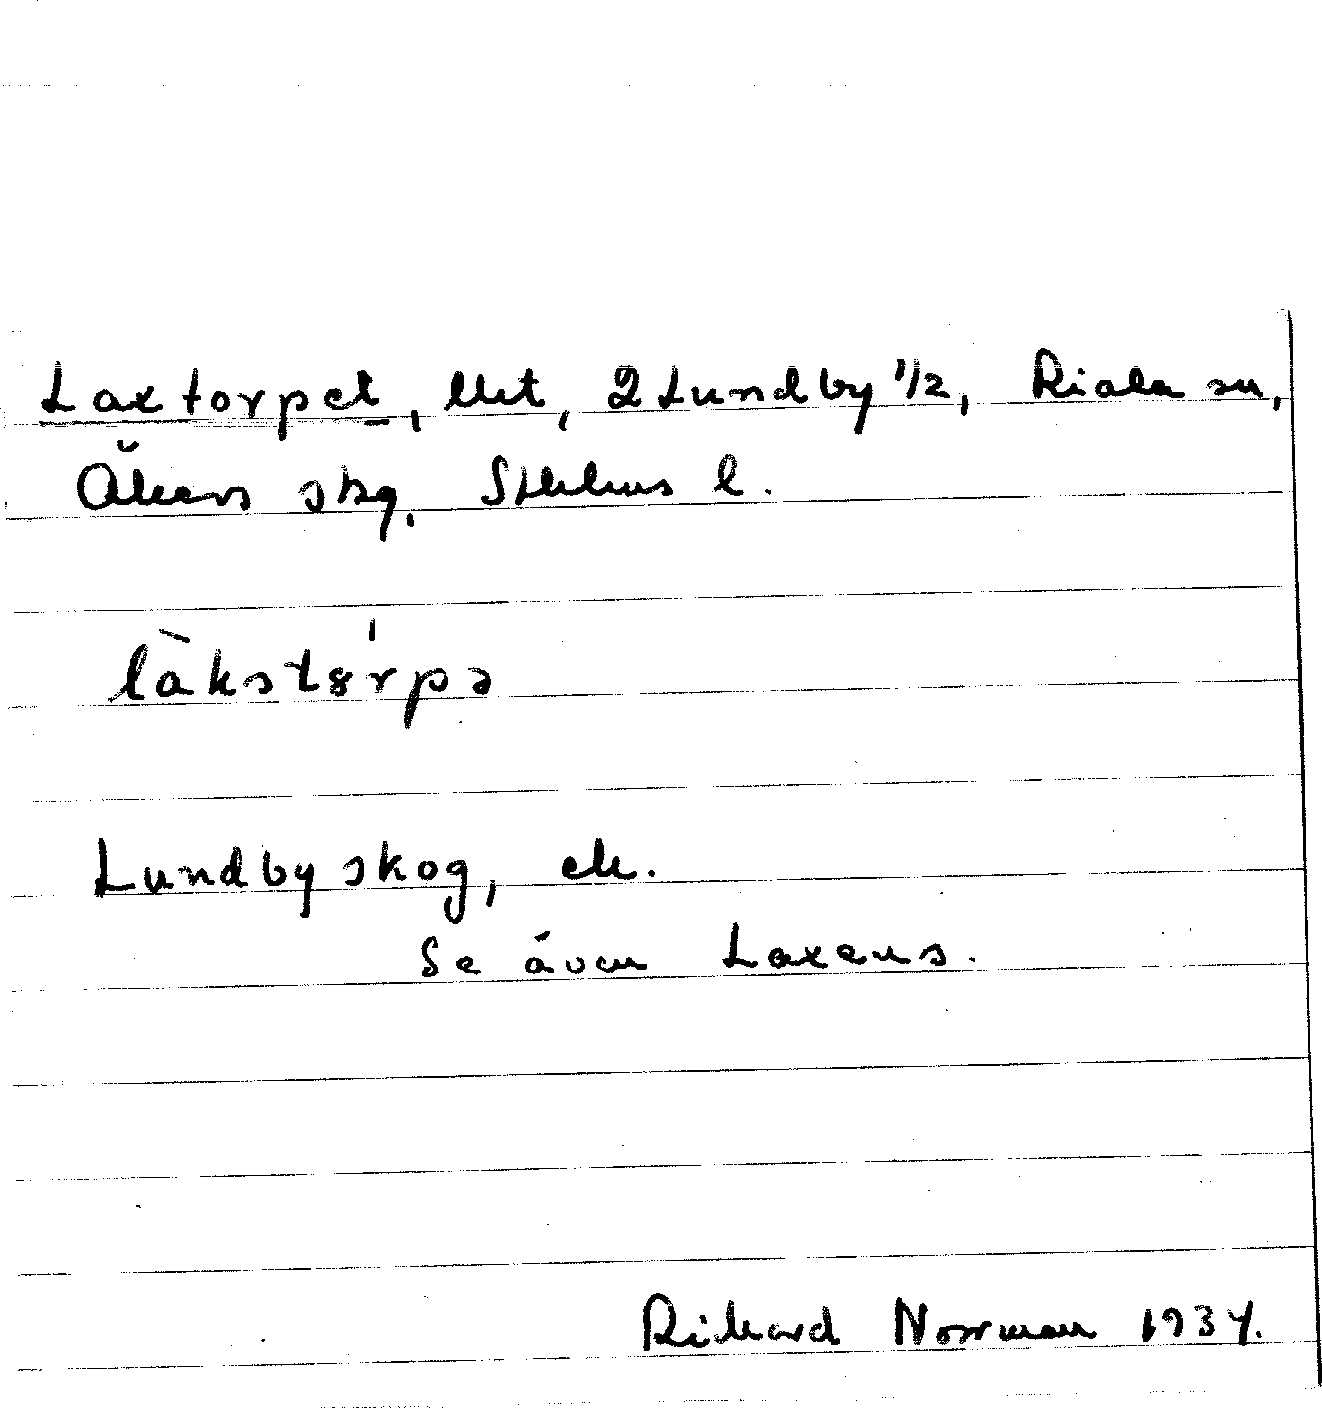 Laxtorpet, lht, 2 Lundby 1/2, Riala sn,
Åkers skg. Sthlms l.
làkstȣ́rpə
Lundby skog, ek.
Se även Laxens.
Rikard Norrman 1934.